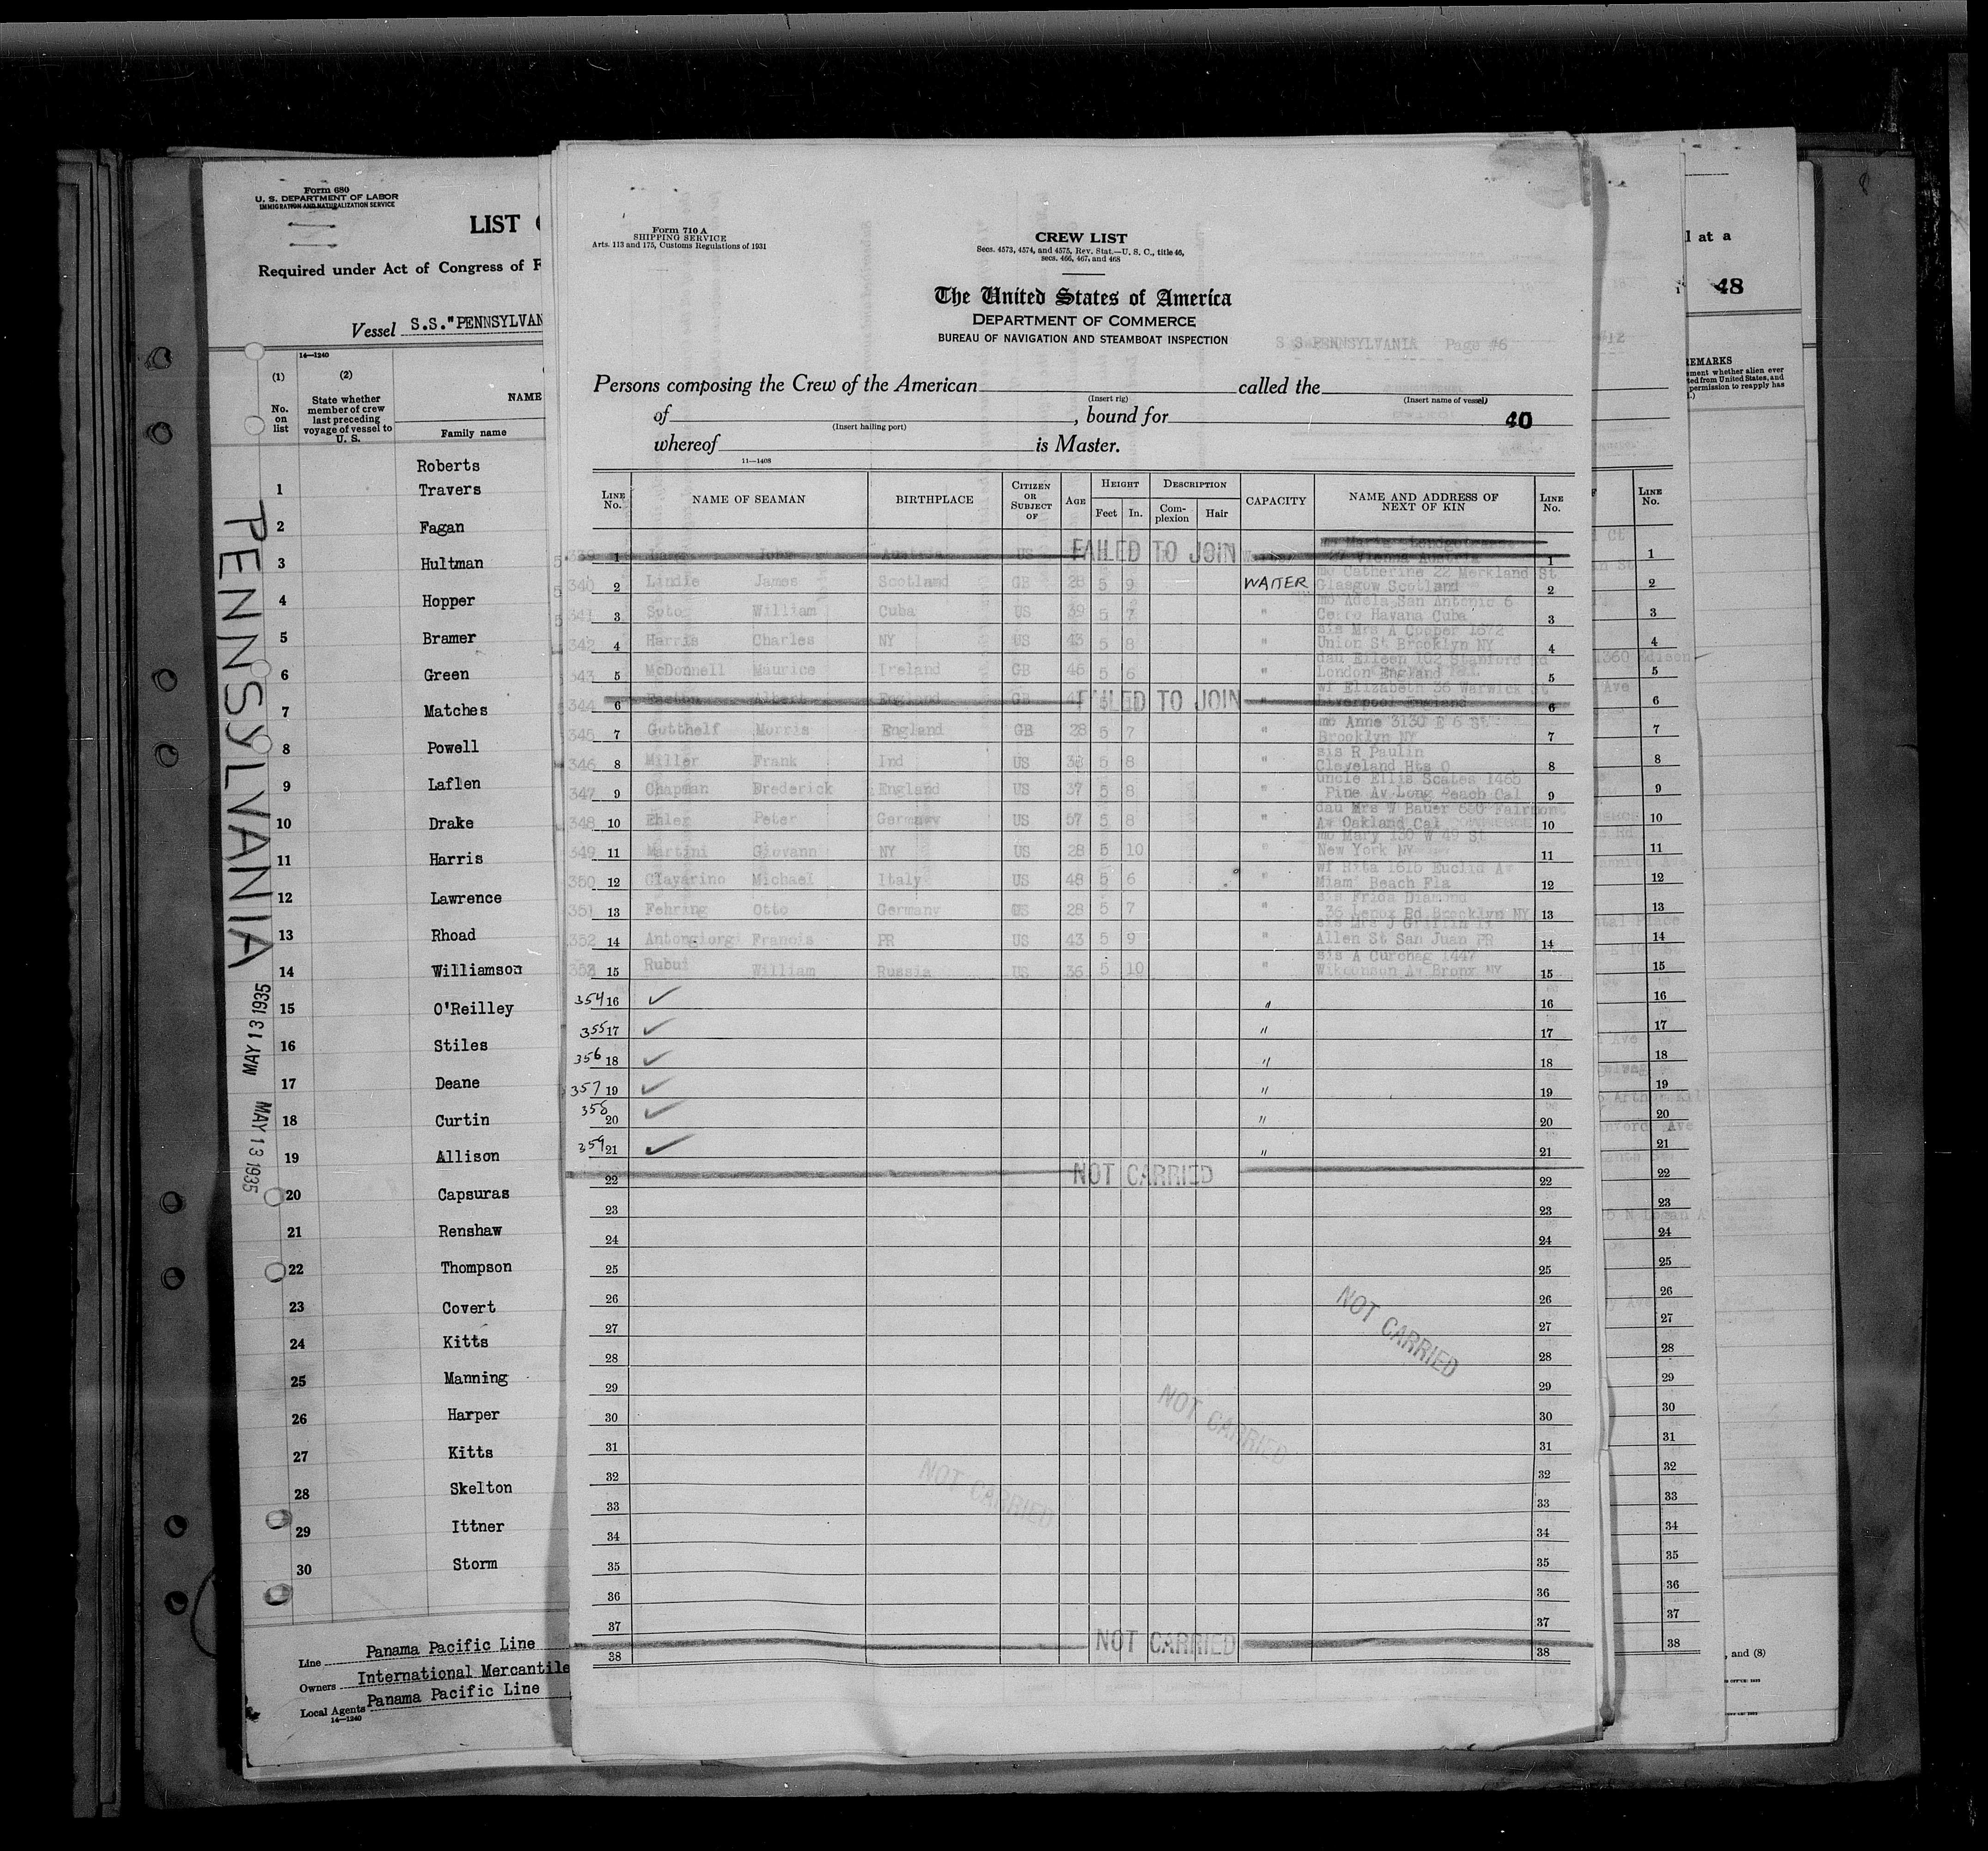 Form 680
U. S. DEPARTMENT OF LABOR
IMMIGRATION AND NATURALIZATION SERVICE
LIST
Required under Act of Congress of F
Vessel S.S."PENNSYLVAN
14—1240
(1) (2)
No. on list
State whether member of crew last preceding voyage of vessel to U. S.
NAME
Family name
Roberts
1 Travers
2 Fagan
3 Hultman
4 Hopper
5 Bramer
6 Green
7 Matches
8 Powell
9 Laflen
10 Drake
11 Harris
12 Lawrence
13 Rhoad
14 Williamson
15 O'Reilley
16 Stiles
17 Deane
18 Curtin
19 Allison
20 Capsuras
21 Renshaw
22 Thompson
23 Covert
24 Kitts
25 Manning
26 Harper
27 Kitts
28 Skelton
29 Ittner
30 Storm
Line Panama Pacific Line
Owners International Mercantile
Local Agents Panama Pacific Line
14—1240
PENNSYLVANIA
MAY 13 1935
MAY 13 1935
Form 710 A
SHIPPING SERVICE
Arts. 113 and 175, Customs Regulations of 1931
CREW LIST
Secs. 4573, 4574, and 4575, Rev. Stat.—U. S. C., title 46,
secs. 466, 467, and 468
The United States of America
DEPARTMENT OF COMMERCE
BUREAU OF NAVIGATION AND STEAMBOAT INSPECTION
S S PENNSYLVANIA Page #6
Persons composing the Crew of the American called the
(Insert rig) (Insert name of vessel)
of , bound for 40
(Insert hailing port)
whereof is Master.
11—1408
LINE No. NAME OF SEAMAN BIRTHPLACE CITIZEN OR SUBJECT OF AGE HEIGHT Feet In. DESCRIPTION Complexion Hair CAPACITY NAME AND ADDRESS OF NEXT OF KIN LINE No.
339 1 John Austria US FAILED TO JOIN Vienna Austria 1
340 2 Lindie James Scotland GB 28 5 9 WAITER mo Catherine 22 Merkland St Glasgow Scotland 2
341 3 Soto William Cuba US 39 5 7 " mo Adela San Antonio 6 Cerro Havana Cuba 3
342 4 Harris Charles NY US 43 5 8 " sis Mrs A Cooper 1672 Union St Brooklyn NY 4
343 5 McDonnell Maurice Ireland GB 46 5 6 " dau Eileen 102 Stanford Rd London England 5
344 6 Albert England GB FAILED TO JOIN " wf Elizabeth 36 Warwick St Liverpool England 6
345 7 Gutthelf Morris England GB 28 5 7 " mo Anne 3130 E 6 St Brooklyn NY 7
346 8 Miller Frank Ind US 5 8 " sis R Paulin Cleveland Hts O 8
347 9 Chapman Drederick England US 37 5 8 " uncle Ellis Scates 1465 Pine Av Long Beach Cal 9
348 10 Ehler Peter Germany US 57 5 8 " dau Mrs W Bauer 630 Fairmont Av Oakland Cal 10
349 11 Martini Giovann NY US 28 5 10 " mo Mary 130 W 49 St New York NY 11
350 12 Clavarino Michael Italy US 48 5 6 " wf Rita 1615 Euclid Av Miami Beach Fla 12
351 13 Fehring Otto Germany US 28 5 7 " sis Frida Diamond 36 Lenox Rd Brooklyn NY 13
352 14 Antongiorgi Francis PR US 43 5 9 " sis Mrs J Griffin Allen St San Juan PR 14
353 15 Rubui William Russia US 36 5 10 " sis A Curchag 1447 Wikconson Av Bronx NY 15
354 16 ✓ " 16
355 17 ✓ " 17
356 18 ✓ " 18
357 19 ✓ " 19
358 20 ✓ " 20
359 21 ✓ " 21
22 NOT CARRIED 22
23 23
24 24
25 25
26 26
27 NOT CARRIED 27
28 28
29 29
30 NOT CARRIED 30
31 31
32 NOT CARRIED 32
33 33
34 34
35 35
36 36
37 37
38 NOT CARRIED 38
#12
LINE No.
1
2
3
4
1360 Edison 5
Ave 6
7
8
9
10
11
12
13
14
15
16
17
18
19
20
21
22
23
24
25
26
27
28
29
30
31
32
33
34
35
36
37
38
l at a
48
REMARKS
, and (8)